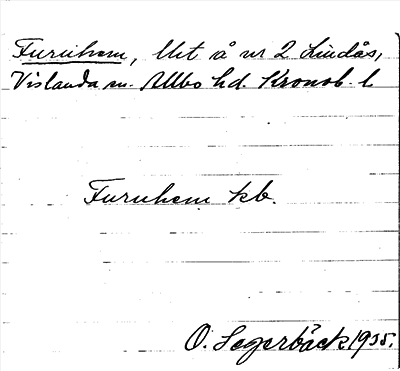 Furuhem, Ust å nr 2 Lindås,
Vislanda sn. Allbo hd. Kronob. l.
Furuhem kb.
O. Segerbäck 1935.